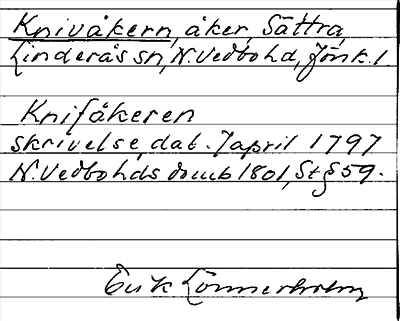 Knivåkern, åker, Sättra,
Linderås sn, N. Vedbo hd, Jönk. l
Knifåkeren
skrivelse, dat. 7 april 1797
N. Vedbo hds domb 1801, St § 59.
Erik Lönnerholm